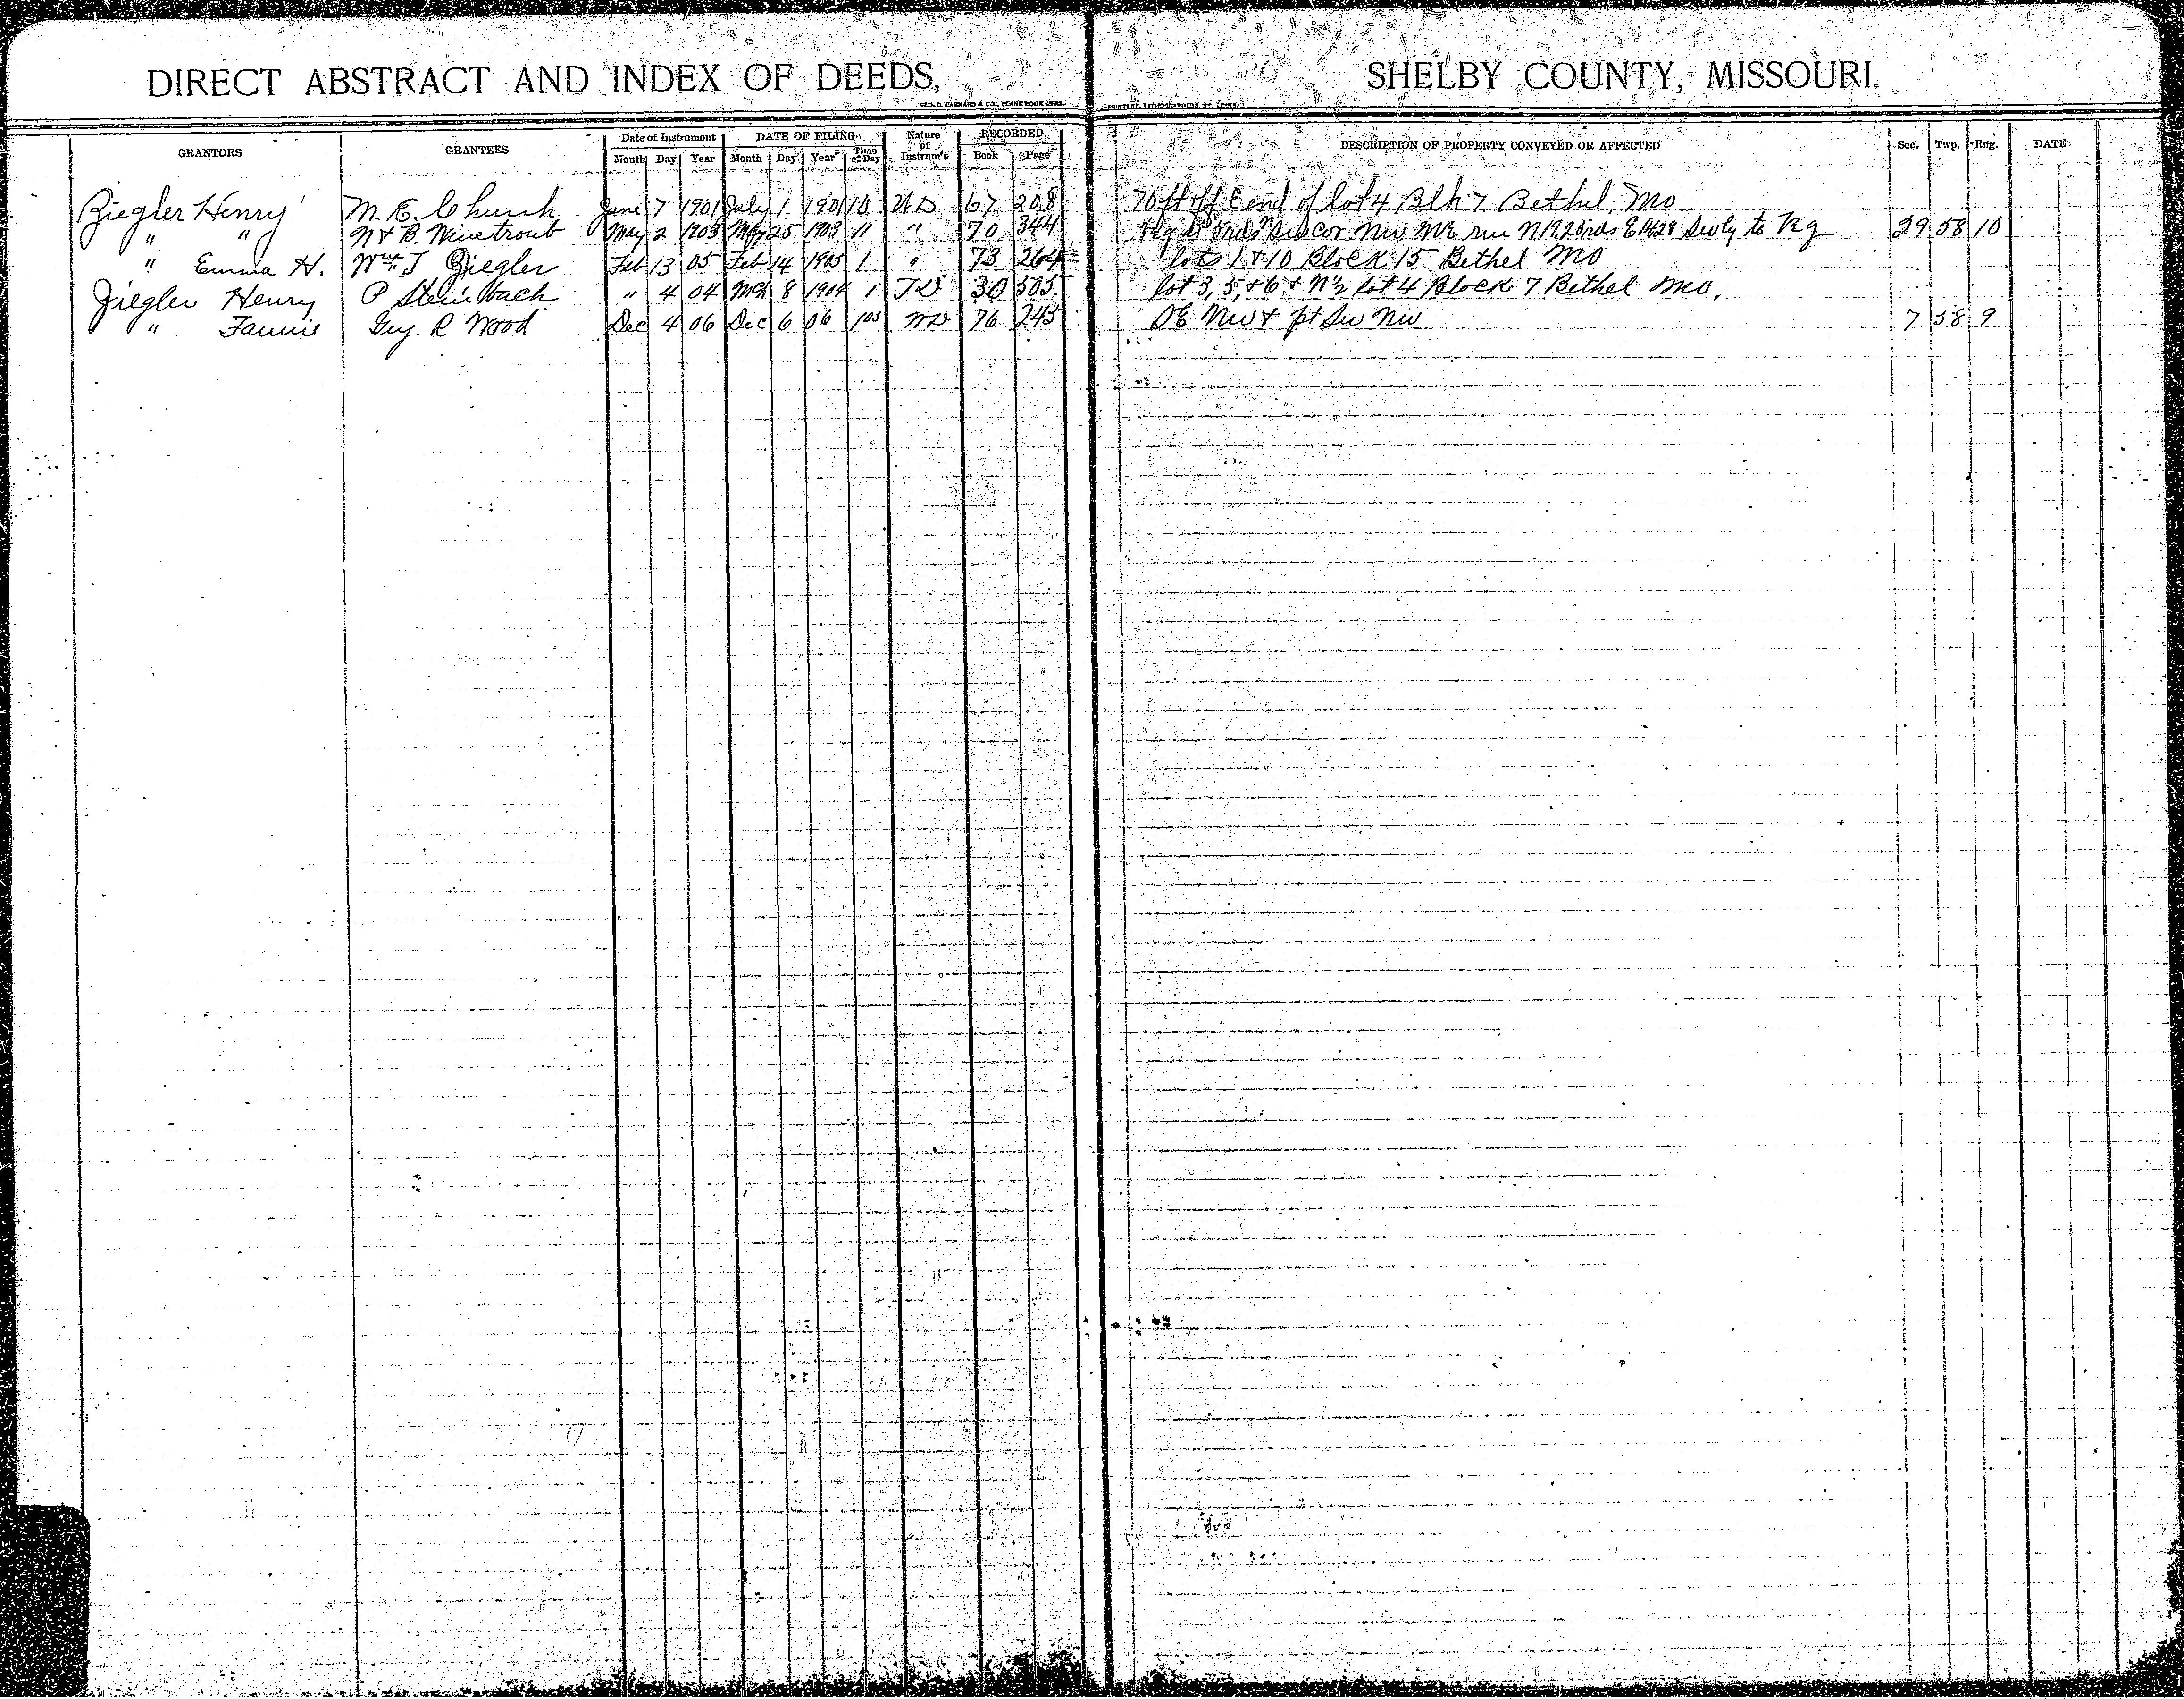 DIRECT ABSTRACT AND INDEX OF DEEDS, SHELBY COUNTY, MISSOURI.
GRANTORS GRANTEES Date of Instrument DATE OF FILING Nature of Instrum't RECORDED DESCRIPTION OF PROPERTY CONVEYED OR AFFECTED Sec. Twp. Rng. DATE
Month Day Year Month Day Year Time of Day Book Page
Ziegler Henry M. E. Church June 7 1901 July 1 1901 10 WD 67 208 70 ft off E end of lot 4 Blk 7 Bethel, Mo
" " N & B. Winetrout May 2 1903 May 25 1903 11 " 70 344 cor NW NE run N E Swly to Beg 29 58 10
" Emma H. Wm J Ziegler Feb 13 05 Feb 14 1905 1 " 73 264 lots 1 & 10 Block 15 Bethel Mo
Ziegler Henry P Steinbach " 4 04 Mch 8 1904 1 TD 30 505 lot 3, 5, & 6 & N½ lot 4 Block 7 Bethel Mo.
" Fannie Guy. R Wood Dec 4 06 Dec 6 06 1 05 WD 76 245 SE NW & pt SW NW 7 58 9